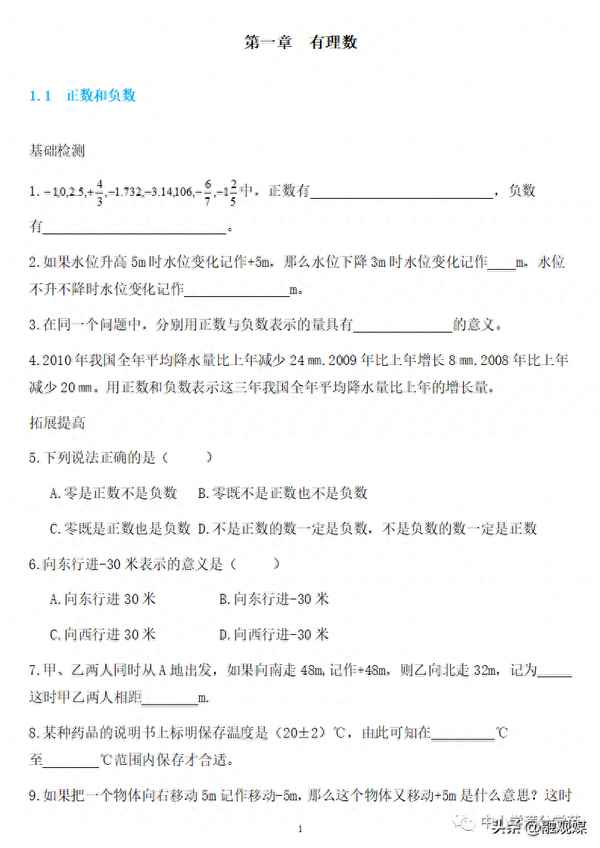 第一章 有理数
1.1 正数和负数
基础检测
1. -1,0,2.5,+4/3,-1.732,-3.14,106,-6/7,-1 2/5 中，正数有__________________________，负数
有__________________________。
2.如果水位升高5m时水位变化记作+5m，那么水位下降3m时水位变化记作____m，水位
不升不降时水位变化记作_______________m。
3.在同一个问题中，分别用正数与负数表示的量具有______________的意义。
4.2010年我国全年平均降水量比上年减少24㎜.2009年比上年增长8㎜.2008年比上年
减少20㎜。用正数和负数表示这三年我国全年平均降水量比上年的增长量。
拓展提高
5.下列说法正确的是（ ）
A.零是正数不是负数 B.零既不是正数也不是负数
C.零既是正数也是负数 D.不是正数的数一定是负数，不是负数的数一定是正数
6.向东行进-30米表示的意义是（ ）
A.向东行进30米 B.向东行进-30米
C.向西行进30米 D.向西行进-30米
7.甲、乙两人同时从A地出发，如果向南走48m,记作+48m，则乙向北走32m，记为_____
这时甲乙两人相距________m.
8.某种药品的说明书上标明保存温度是（20±2）℃，由此可知在_________℃
至________℃范围内保存才合适。
9.如果把一个物体向右移动5m记作移动-5m，那么这个物体又移动+5m是什么意思？这时
1
头条@融观媒